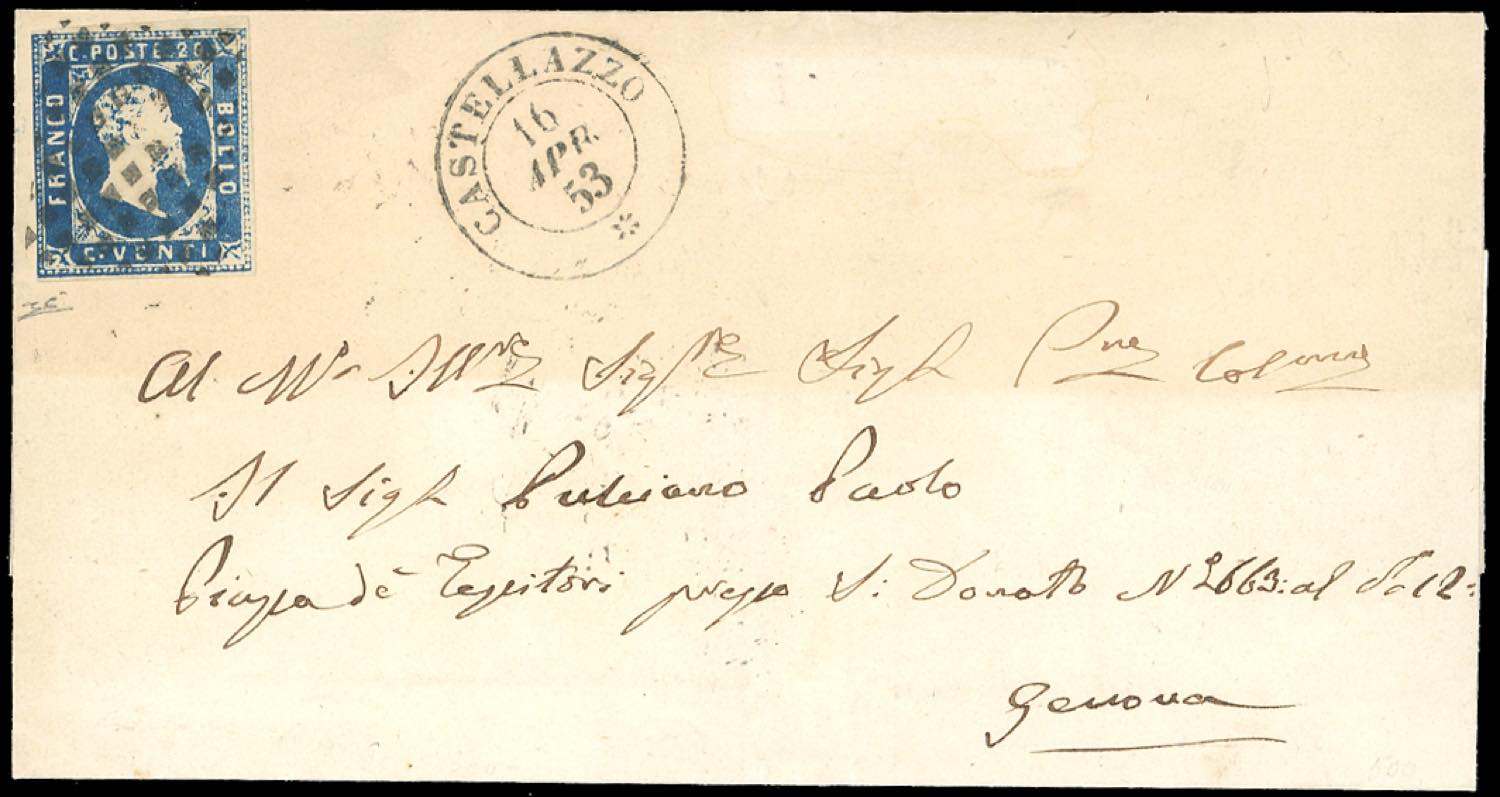 C. POSTE 20
FRANCO
BOLLO
C. VENTI
CASTELLAZZO
16
APR.
53
Al M.º Ill.re Sig.re Sig.
Il Sig. Pulciano Paolo
Piazza dè Tessitori presso S: Donato N.º 2663: al
Genova
500